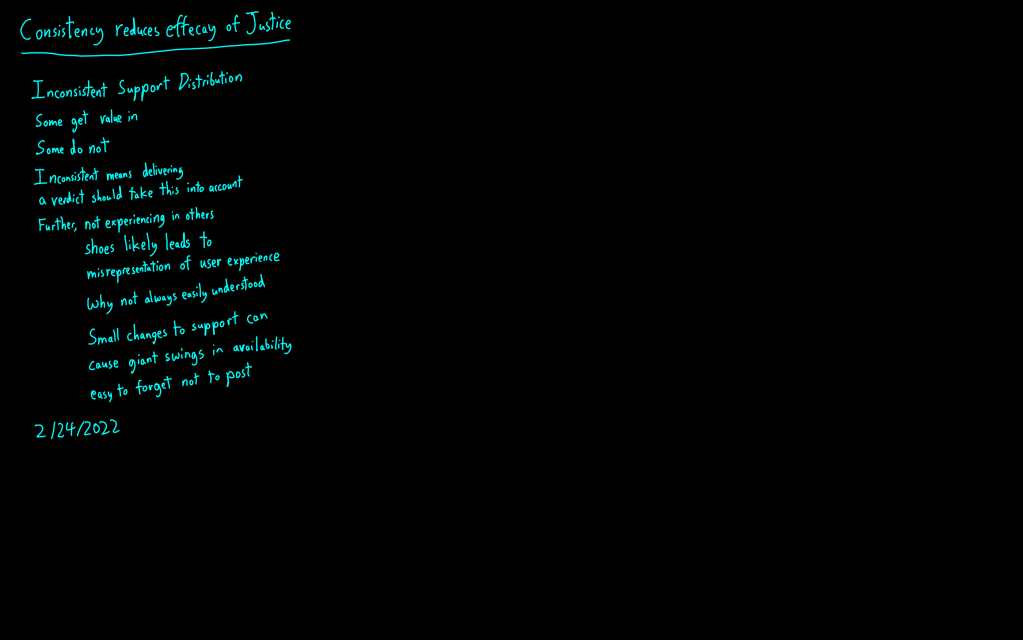 Consistency reduces effecay of Justice
Inconsistent Support Distribution
Some get value in
Some do not
Inconsistent means delivering
a verdict should take this into account
Further, not experiencing in others
shoes likely leads to
misrepresentation of user experience
Why not always easily understood
Small changes to support can
cause giant swings in availability
easy to forget not to post
2/24/2022